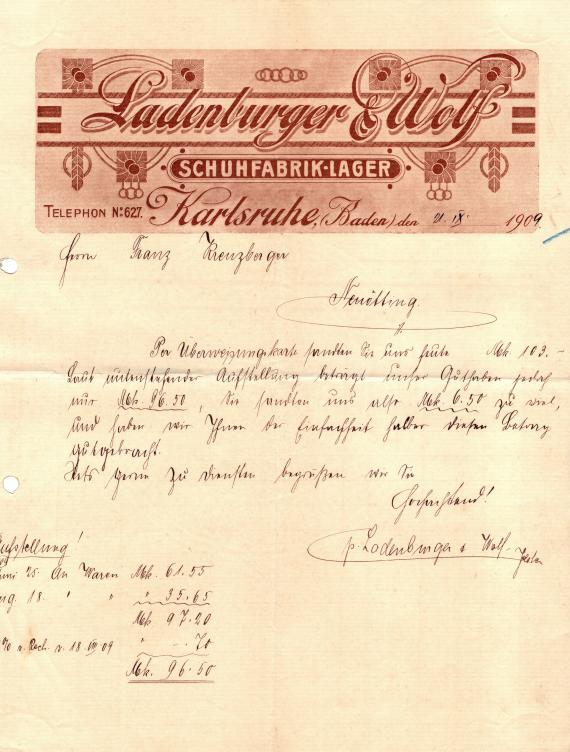 Ladenburger & Wolf
SCHUHFABRIK-LAGER
TELEPHON No: 627. Karlsruhe, (Baden) den 21. IX. 1909.
Herrn Franz Kreuzberger
Neuötting.
Per Überweisungskarte sandten Sie uns heute Mk 103.-
Laut untenstehender Aufstellung beträgt unser Guthaben jedoch
nur Mk. 96.50, Sie sandten uns also Mk. 6.50 zu viel,
und haben wir Ihnen der Einfachheit halber diesen Betrag
gutgebracht.
Stets gerne zu Diensten begrüßen wir Sie
Hochachtend!
p. Ladenburger & Wolf
Aufstellung!
Juni 25. An Waren Mk. 61.55
Aug. 18. " " " 35.65
Mk 97.20
v. 18. VIII 09 " -.70
Mk. 96.50